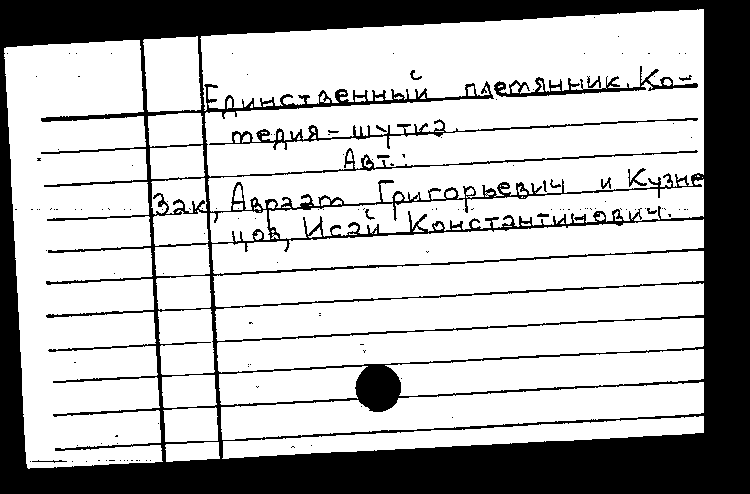 Единственный племянник. Ко-
медия-шутка.
Авт.:
Зак, Авраам Григорьевич и Кузне
цов, Исай Константинович.